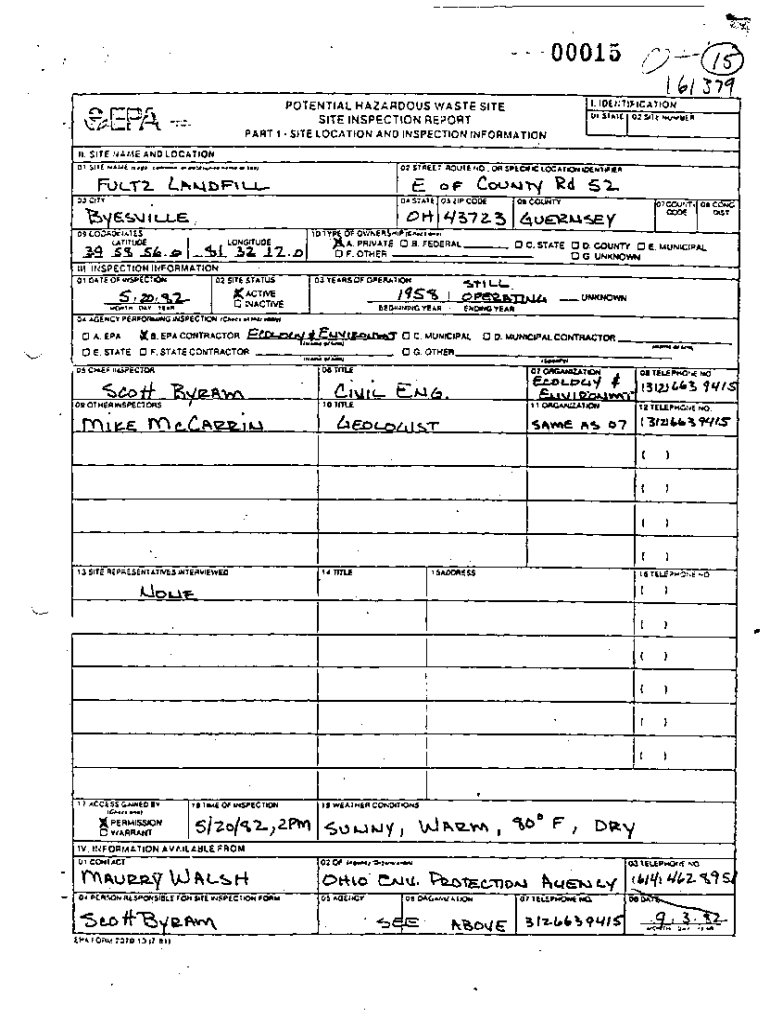 00015
15
161379
EPA
POTENTIAL HAZARDOUS WASTE SITE
SITE INSPECTION REPORT
PART 1 - SITE LOCATION AND INSPECTION INFORMATION
I. IDENTIFICATION
01 STATE 02 SITE NUMBER
II. SITE NAME AND LOCATION
01 SITE NAME
02 STREET, ROUTE NO., OR SPECIFIC LOCATION IDENTIFIER
FULTZ LANDFILL
E OF COUNTY Rd 52
03 CITY
04 STATE 05 ZIP CODE 06 COUNTY 07 COUNTY CODE 08 CONG DIST
BYESVILLE
OH 43723 GUERNSEY
09 COORDINATES
LATITUDE LONGITUDE
39 58 56.0 81 32 12.0
10 TYPE OF OWNERSHIP (Check one)
X A. PRIVATE B. FEDERAL C. STATE D. COUNTY E. MUNICIPAL
F. OTHER G UNKNOWN
III. INSPECTION INFORMATION
01 DATE OF INSPECTION
5.20.82
MONTH DAY YEAR
02 SITE STATUS
X ACTIVE
INACTIVE
03 YEARS OF OPERATION
1958 STILL OPERATING UNKNOWN
BEGINNING YEAR ENDING YEAR
04 AGENCY PERFORMING INSPECTION (Check all that apply)
A. EPA X B. EPA CONTRACTOR ECOLOGY & ENVIRONMENT C. MUNICIPAL D. MUNICIPAL CONTRACTOR
E. STATE F. STATE CONTRACTOR G. OTHER
05 CHIEF INSPECTOR 06 TITLE 07 ORGANIZATION 08 TELEPHONE NO
SCOTT BYRAM CIVIL ENG. ECOLOGY & ENVIRONMT (312) 663 9415
09 OTHER INSPECTORS 10 TITLE 11 ORGANIZATION 12 TELEPHONE NO.
MIKE McCARRIN GEOLOGIST SAME AS 07 (312) 663 9415
( )
( )
( )
( )
13 SITE REPRESENTATIVES INTERVIEWED 14 TITLE 15 ADDRESS 16 TELEPHONE NO
NONE ( )
( )
( )
( )
( )
( )
17 ACCESS GAINED BY
(Check one)
X PERMISSION
WARRANT
18 TIME OF INSPECTION
5/20/82, 2PM
19 WEATHER CONDITIONS
SUNNY, WARM, 80° F, DRY
IV. INFORMATION AVAILABLE FROM
01 CONTACT 02 OF (Agency/Organization) 03 TELEPHONE NO.
MAURRY WALSH OHIO ENV. PROTECTION AGENCY (614) 462 895
04 PERSON RESPONSIBLE FOR SITE INSPECTION FORM 05 AGENCY 06 ORGANIZATION 07 TELEPHONE NO. 08 DATE
SCOTT BYRAM SEE ABOVE 312 663 9415 9.3.82
MONTH DAY YEAR
EPA FORM 2070-13 (7-81)